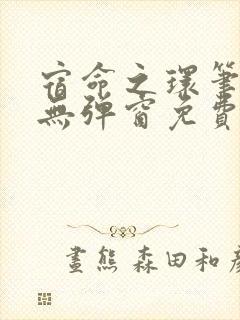 宿命之環筆
無彈窗免費
畫熊 森田和彥